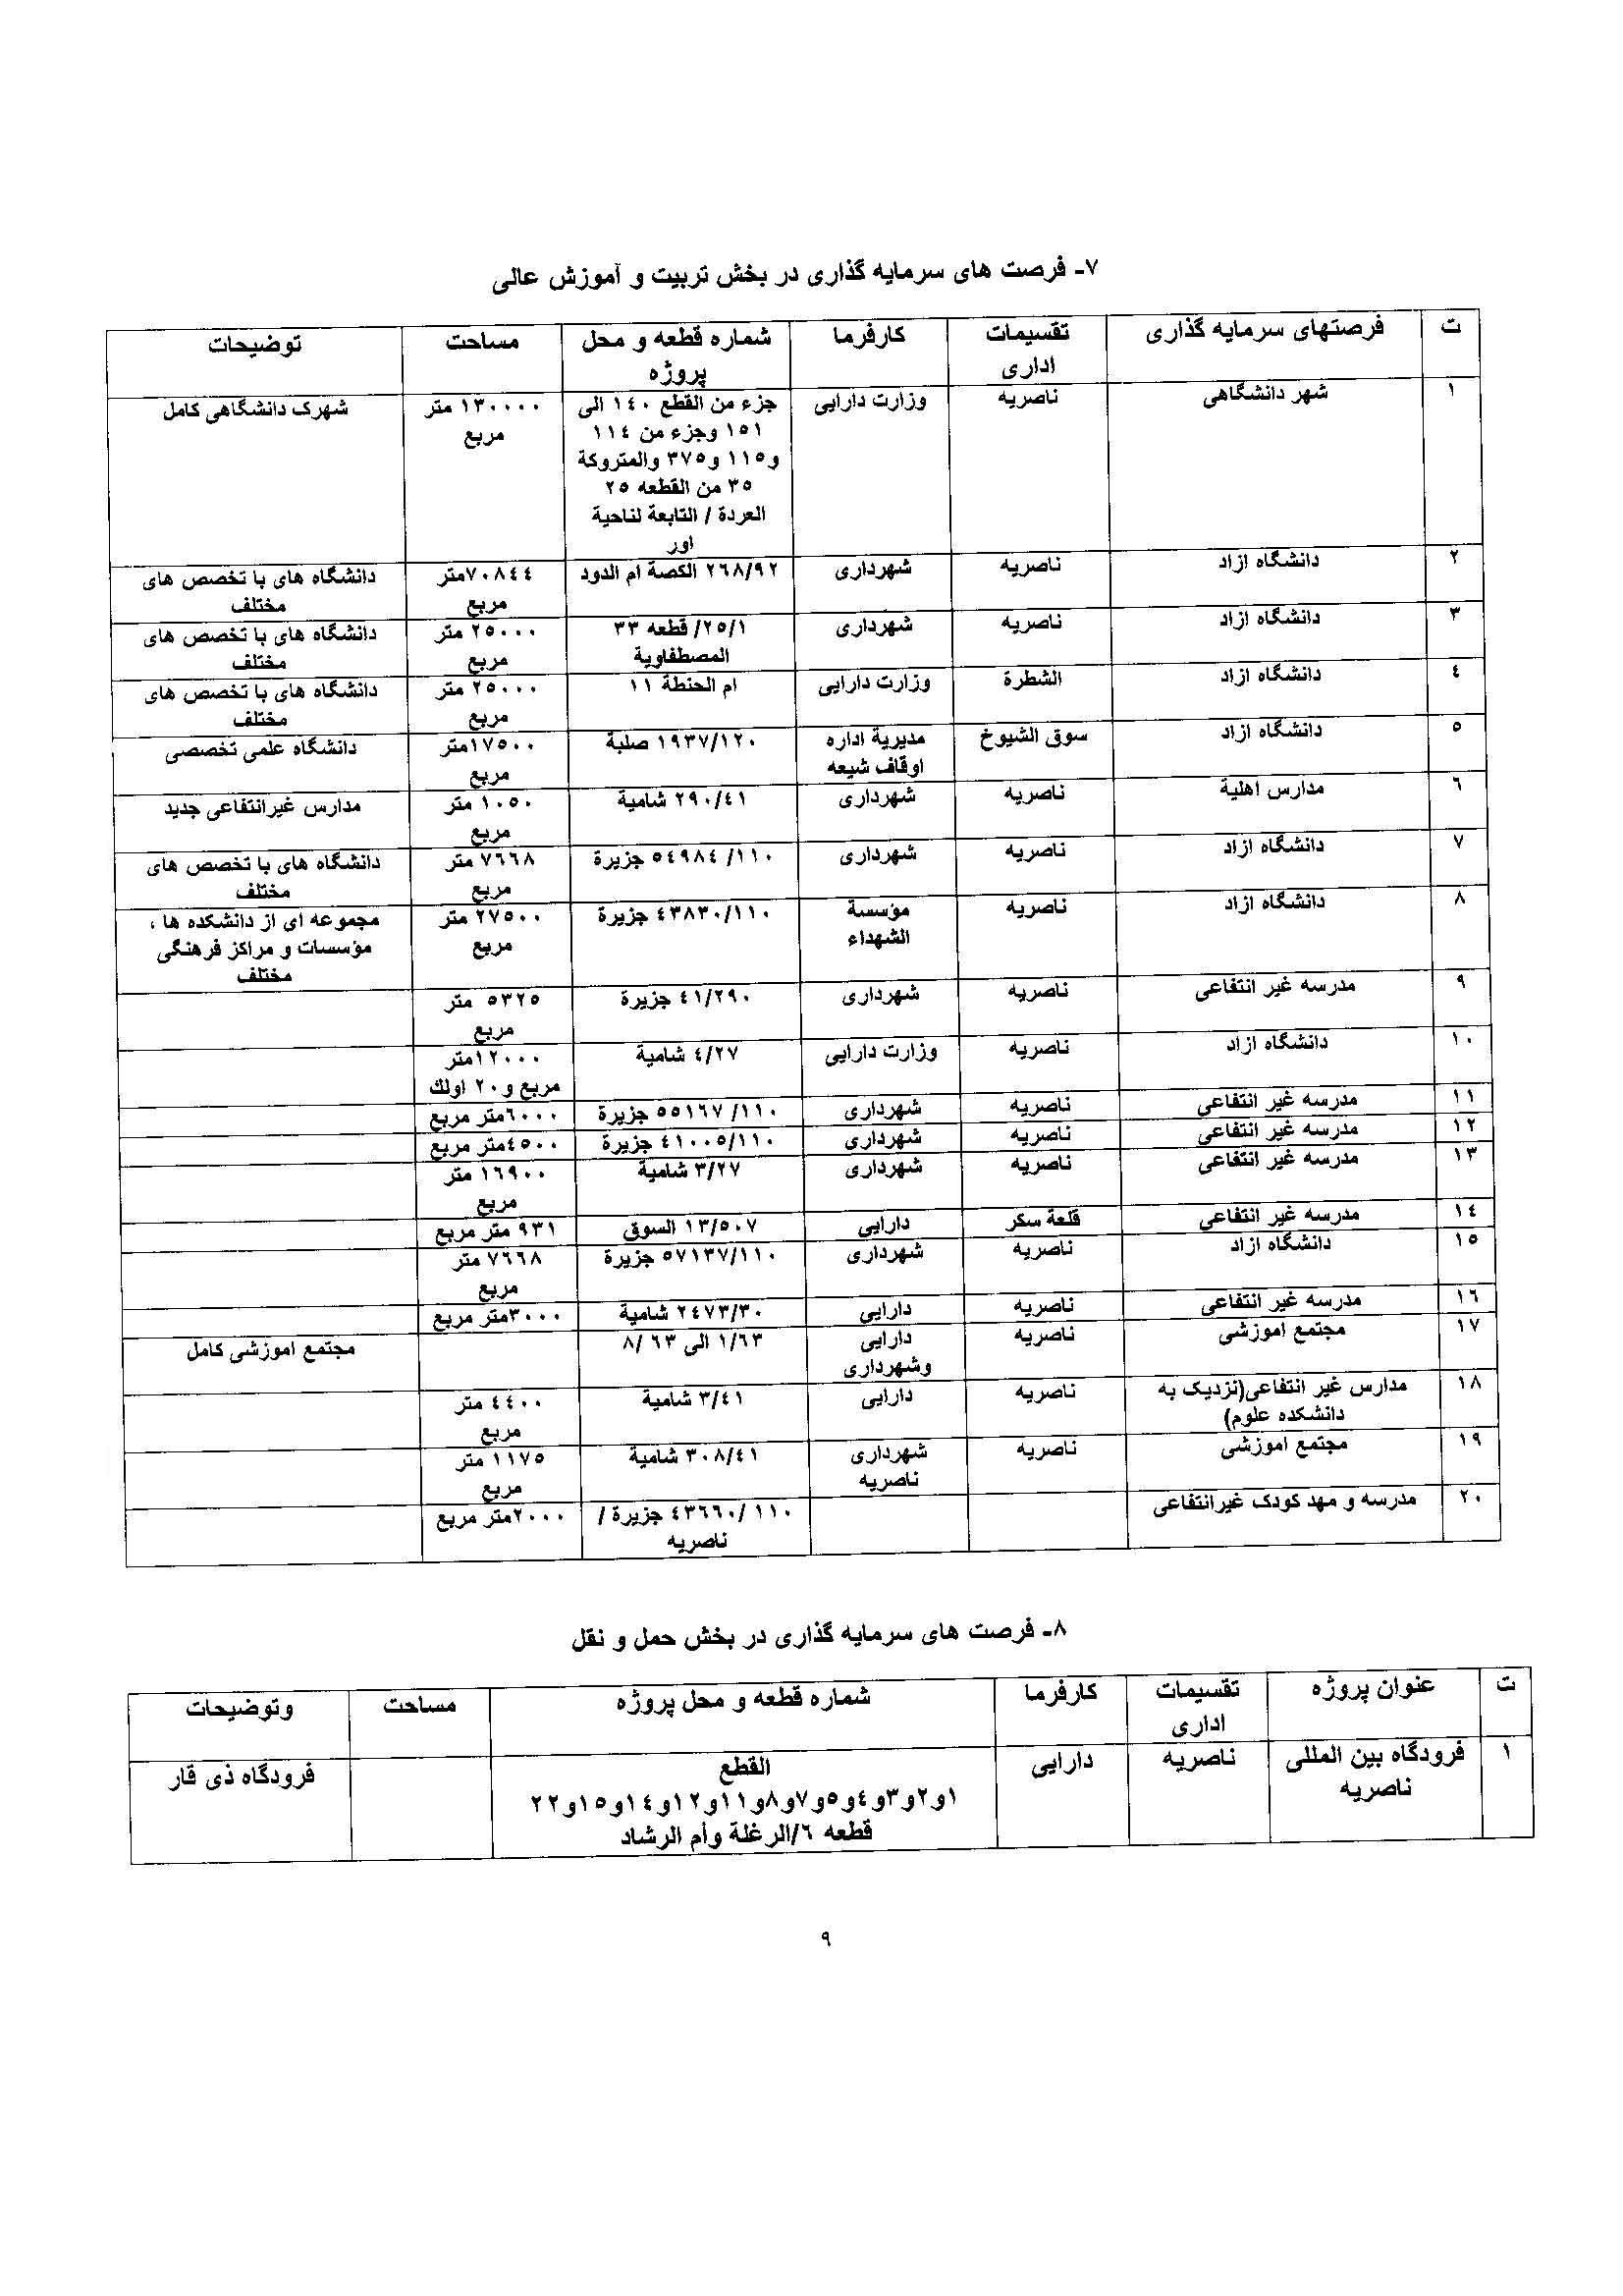 ۷- فرصت های سرمایه گذاری در بخش تربیت و آموزش عالی
ت | فرصتهای سرمایه گذاری | تقسیمات اداری | کارفرما | شماره قطعه و محل پروژه | مساحت | توضیحات
١ | شهر دانشگاهی | ناصریه | وزارت دارایی | جزء من القطع ١٤٠ الی ١٥١ وجزء من ١١٤ و١١٥ و٣٧٥ والمتروکة ٣٥ من القطعه ٢٥ العردة / التابعة لناحیة اور | ١٣٠٠٠٠ متر مربع | شهرک دانشگاهی کامل
٢ | دانشگاه ازاد | ناصریه | شهرداری | ٢٦٨/٩٢ الکصة ام الدود | ٧٠٨٤٤متر مربع | دانشگاه های با تخصص های مختلف
٣ | دانشگاه ازاد | ناصریه | شهرداری | ٢٥/١/ قطعه ٣٣ المصطفاویة | ٢٥٠٠٠ متر مربع | دانشگاه های با تخصص های مختلف
٤ | دانشگاه ازاد | الشطرة | وزارت دارایی | ام الحنطة ١١ | ٢٥٠٠٠ متر مربع | دانشگاه های با تخصص های مختلف
٥ | دانشگاه ازاد | سوق الشیوخ | مدیریة اداره اوقاف شیعه | ١٩٣٧/١٢٠ صلبة | ١٧٥٠٠متر مربع | دانشگاه علمی تخصصی
٦ | مدارس اهلیة | ناصریه | شهرداری | ٢٩٠/٤١ شامیة | ١٠٥٠ متر مربع | مدارس غیرانتفاعی جدید
٧ | دانشگاه ازاد | ناصریه | شهرداری | ٥٤٩٨٤ /١١٠ جزیرة | ٧٦٦٨ متر مربع | دانشگاه های با تخصص های مختلف
٨ | دانشگاه ازاد | ناصریه | مؤسسة الشهداء | ٤٣٨٣٠/١١٠ جزیرة | ٢٧٥٠٠ متر مربع | مجموعه ای از دانشکده ها ، مؤسسات و مراکز فرهنگی مختلف
٩ | مدرسه غیر انتفاعی | ناصریه | شهرداری | ٤١/٢٩٠ جزیرة | ٥٣٢٥ متر مربع |
١٠ | دانشگاه ازاد | ناصریه | وزارت دارایی | ٤/٢٧ شامیة | ١٢٠٠٠متر مربع و٢٠ اولك |
١١ | مدرسه غیر انتفاعی | ناصریه | شهرداری | ٥٥١٦٧ /١١٠ جزیرة | ٦٠٠٠متر مربع |
١٢ | مدرسه غیر انتفاعی | ناصریه | شهرداری | ٤١٠٠٥/١١٠ جزیرة | ٤٥٠٠متر مربع |
١٣ | مدرسه غیر انتفاعی | ناصریه | شهرداری | ٣/٢٧ شامیة | ١٦٩٠٠ متر مربع |
١٤ | مدرسه غیر انتفاعی | قلعة سکر | دارایی | ١٣/٥٠٧ السوق | ٩٣١ متر مربع |
١٥ | دانشگاه ازاد | ناصریه | شهرداری | ٥٧١٣٧/١١٠ جزیرة | ٧٦٦٨ متر مربع |
١٦ | مدرسه غیر انتفاعی | ناصریه | دارایی | ٢٤٧٣/٣٠ شامیة | ٣٠٠٠متر مربع |
١٧ | مجتمع اموزشی | ناصریه | دارایی وشهرداری | ١/٦٣ الی ٦٣ /٨ | | مجتمع اموزشی کامل
١٨ | مدارس غیر انتفاعی(نزدیک به دانشکده علوم) | ناصریه | دارایی | ٣/٤١ شامیة | ٤٤٠٠ متر مربع |
١٩ | مجتمع اموزشی | ناصریه | شهرداری ناصریه | ٣٠٨/٤١ شامیة | ١١٧٥ متر مربع |
٢٠ | مدرسه و مهد کودک غیرانتفاعی | | | ٤٣٦٦٠/ ١١٠ جزیرة / ناصریه | ٢٠٠٠متر مربع |
۸- فرصت های سرمایه گذاری در بخش حمل و نقل
ت | عنوان پروژه | تقسیمات اداری | کارفرما | شماره قطعه و محل پروژه | مساحت | وتوضیحات
١ | فرودگاه بین المللی ناصریه | ناصریه | دارایی | القطع ١و٢و٣و٤و٥و٧و٨و١١و١٢و١٤و١٥و٢٢ قطعه ٦/الرغلة وأم الرشاد | | فرودگاه ذی قار
٩